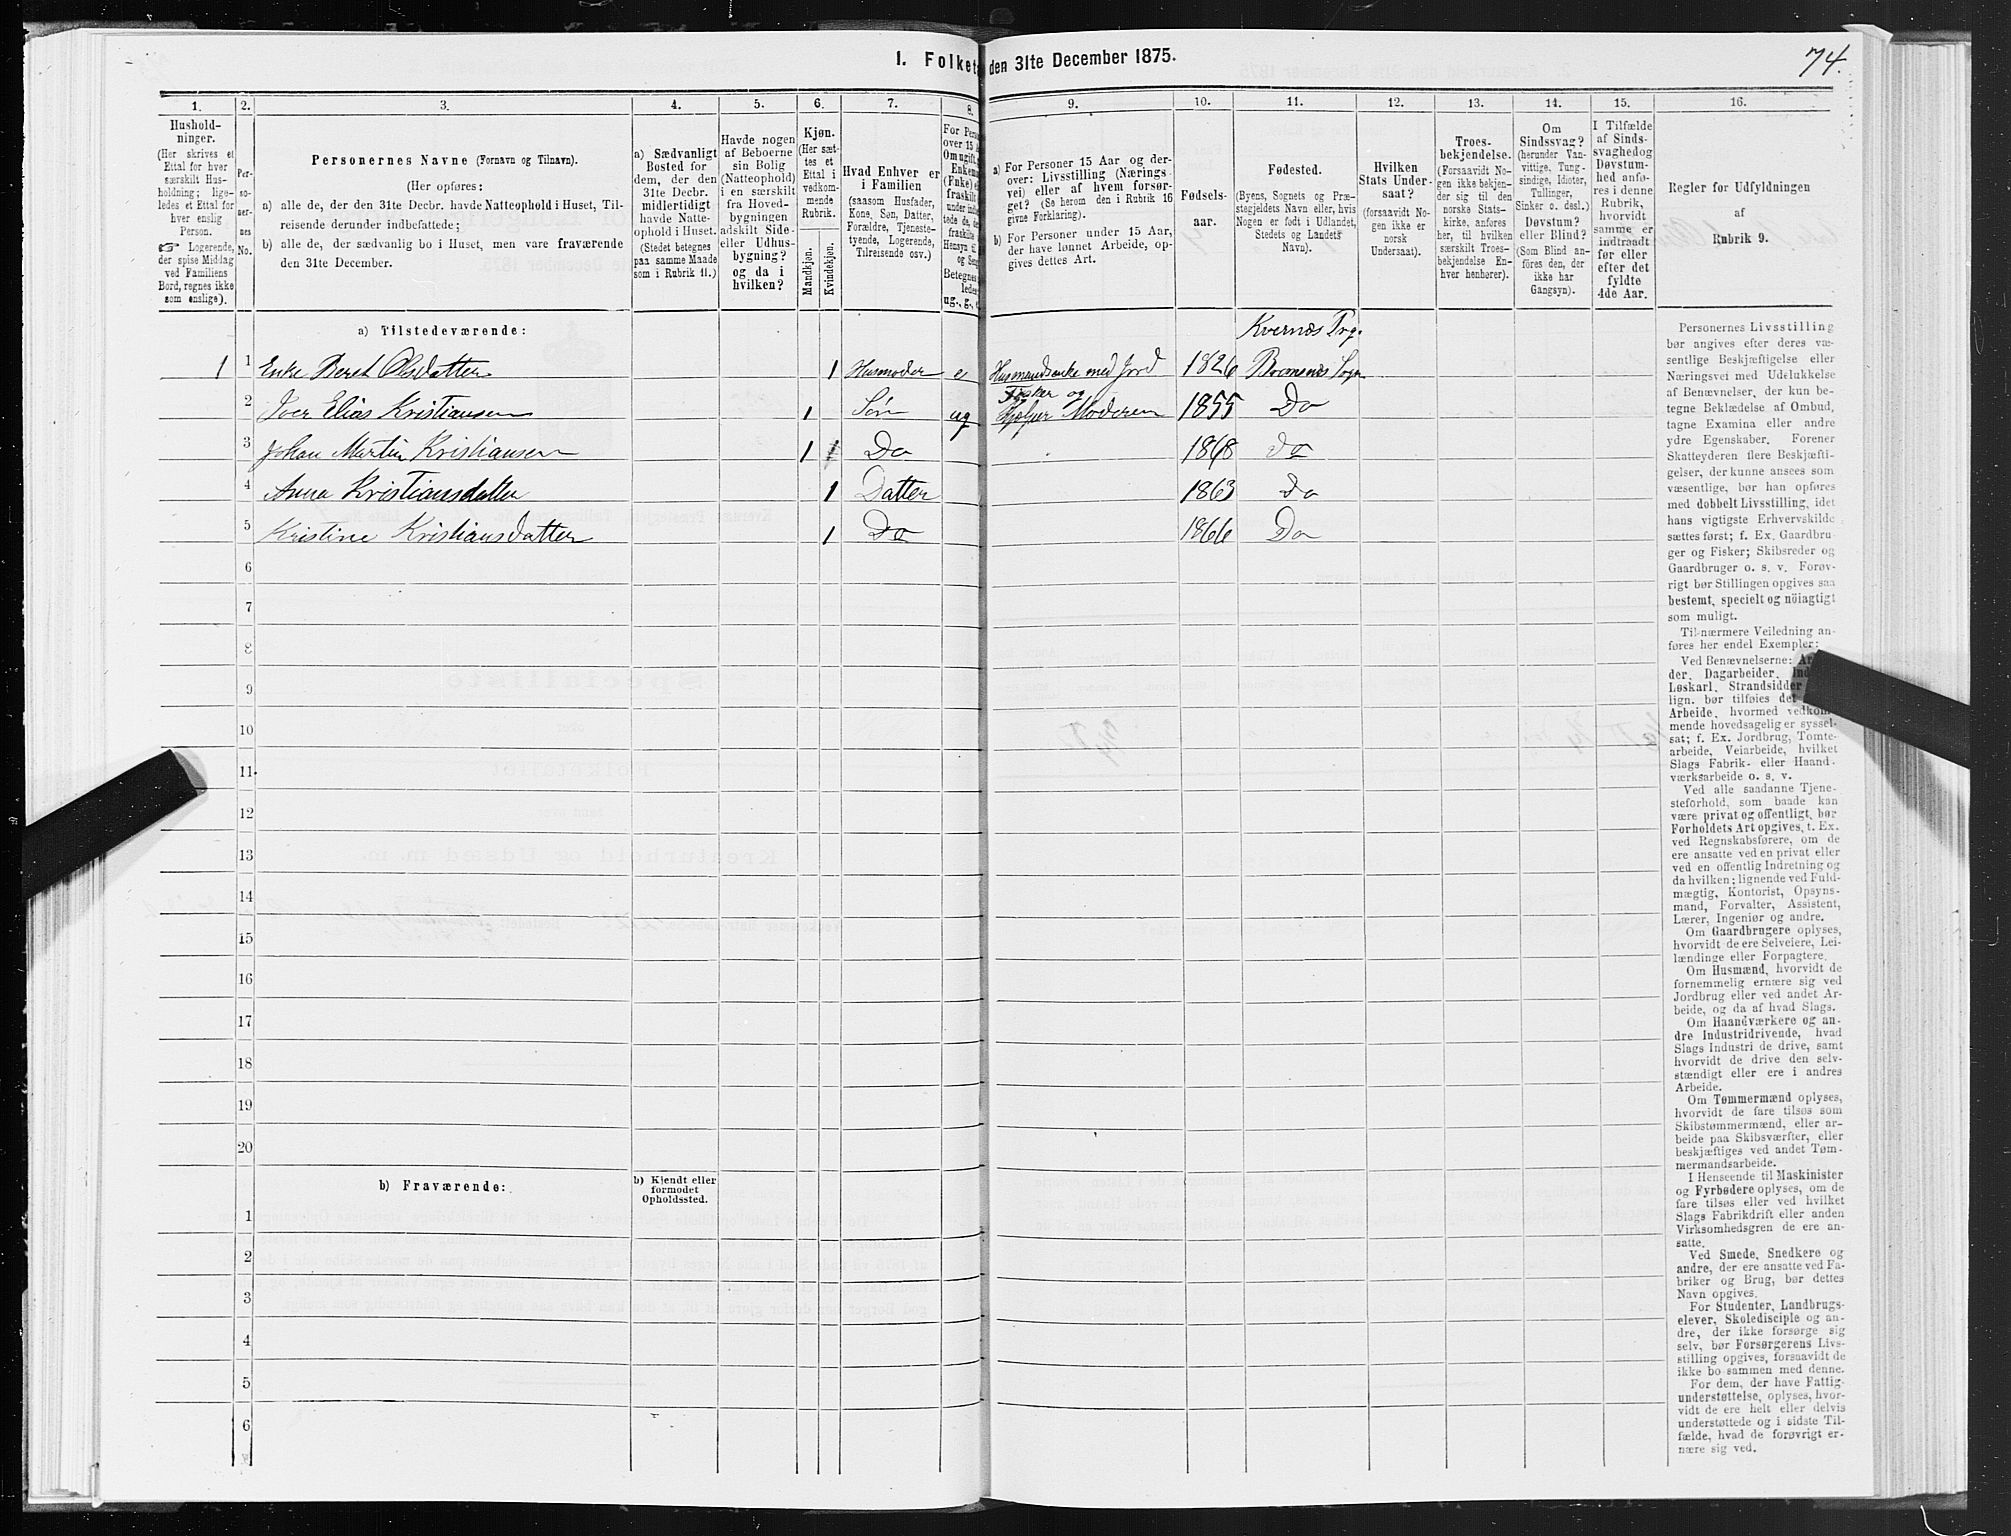 74.
I. Folket den 31te December 1875.
1. 2. 3. 4. 5. 6. 7. 8. 9. 10. 11. 12. 13. 14. 15. 16.
Hushold-
ninger.
(Her skrives et
Ettal for hver
særskilt Hus-
holdning; lige-
ledes et Ettal for
hver enslig
Person.
☞ Logerende,
der spise Middag
ved Familiens
Bord, regnes ikke
som enslige).
Per-
so-
ner-
nes
No.
Personernes Navne (Fornavn og Tilnavn).
(Her opføres:
a) alle de, der den 31te Decbr. havde Natteophold i Huset, Til-
reisende derunder indbefattede;
b) alle de, der sædvanlig bo i Huset, men vare fraværende
den 31te December.
a) Sædvanligt
Bosted for
dem, der den
31te Decbr.
midlertidigt
havde Natte-
ophold i Huset.
(Stedet betegnes
paa samme Maade
som i Rubrik 11.)
Havde nogen
af Beboerne
sin Bolig
(Natteophold)
i en særskilt
fra Hoved-
bygningen
adskilt Side-
eller Udhus-
bygning?
og da i
hvilken?
Kjøn.
(Her sæt-
tes et
Ettal i
vedkom-
mende
Rubrik.
Mandkjøn.
Kvindekjøn.
Hvad Enhver er
i Familien
(saasom Husfader,
Kone, Søn, Datter,
Forældre, Tjeneste-
tyende, Logerende,
Tilreisende osv.)
For Pers
over 15
Om ugift,
Enkem
(Fnke) e
fraskilt
under
tede de,
fraskilte
Hensyn til
og Seng
Betegnes
ledes
ug., g., e
a) For Personer 15 Aar og der-
over: Livsstilling (Nærings-
vei) eller af hvem forsør-
get? (Se herom den i Rubrik 16
givne Forklaring).
b) For Personer under 15 Aar,
der have lønnet Arbeide, op-
gives dettes Art.
Fødsels-
aar.
Fødested.
(Byens, Sognets og Præ-
stegjeldets Navn eller, hvis
Nogen er født i Udlandet,
Stedets og Landets
Navn).
Hvilken
Stats Under-
saat?
(forsaavidt No-
gen ikke er
norsk
Undersaat).
Troes-
bekjendelse.
(Forsaavidt No-
gen ikke bekjen-
der sig til den
norske Stats-
kirke, anføres
her, til hvilken
særskilt Troes-
bekjendelse En-
hver henhører).
Om
Sindssvag?
(herunder Van-
vittige, Tung-
sindige, Idioter,
Tullinger,
Sinker o. desl.)
Døvstum?
eller Blind?
(Som Blind an-
føres den, der
ikke har
Gangsyn).
I Tilfælde
af Sinds-
svaghed og
Døvstum-
hed anfø-
res i denne
Rubrik,
hvorvidt
samme er
indtraadt
før eller
efter det
fyldte
4de Aar.
Regler for Udfyldningen
af
Rubrik 9.
a) Tilstedeværende:
Kvernes Prg.
1 1 Enke Beret Olsdatter 1 Husmoder e Husmandsenke med Jord 1826 Bremsnes Sogn
Fisker og
2 Iver Elias Kristiansen 1 Søn ug Hjelper Moderen 1855 Do
3 Johan Martin Kristiansen 1 Do 1868 do
4 Anna Kristiansdatter 1 Datter 1863 Do
5 Kristine Kristiansdatter 1 Do 1866 Do
6
7
8
9
10
11
12
13
14
15
16
17
18
19
20
b) Fraværende:
b) Kjendt eller
formodet
Opholdssted.
1
2
3
4
5
6
Personernes Livsstilling
bør angives efter deres væ-
sentlige Beskjæftigelse eller
Næringsvei med Udelukkelse
af Benævnelser, der kun be-
tegne Beklædelse af Ombud,
tagne Examina eller andre
ydre Egenskaber. Forener
Skatteyderen flere Beskjæfti-
gelser, der kunne ansees som
væsentlige, bør han opføres
med dobbelt Livsstilling, idet
hans vigtigste Erhvervskilde
sættes først; f. Ex. Gaardbru-
ger og Fisker; Skibsreder og
Gaardbruger o. s. v. Forøv-
rigt bør Stillingen opgives saa
bestemt, specielt og nöiagtigt
som muligt.
Til nærmere Veiledning an-
føres her endel Exempler:
Ved Benævnelserne: Ar
der, Dagarbeider, Ind
Løskarl, Strandsidder
lign. bør tilføies det
Arbeide, hvormed vedkom-
mende hovedsagelig er syssel-
sat; f. Ex. Jordbrug, Tomte-
arbeide, Veiarbeide, hvilket
Slags Fabrik- eller Haand-
værksarbeide o. s. v.
Ved alle saadanne Tjene-
steforhold, som baade kan
være privat og offentligt, bør
Forholdets Art opgives, t. Ex.
ved Regnskabsførere, om de
ere ansatte ved en privat eller
ved en offentlig Indretning og
da hvilken; lignende ved Fuld-
mægtig, Kontorist, Opsyns-
mand, Forvalter, Assistent,
Lærer, Ingeniør og andre.
Om Gaardbrugere oplyses,
hvorvidt de ere Selveiere, Lei-
lændinge eller Forpagtere.
Om Husmænd, hvorvidt de
fornemmelig ernære sig ved
Jordbrug eller ved andet Ar-
beide, og da af hvad Slags.
Om Haandværkere og an-
dre Industridrivende, hvad
Slags Industri de drive, samt
hvorvidt de drive den selv-
stændigt eller ere i andres
Arbeide.
Om Tømmermænd oplyses,
hvorvidt de fare tilsøs som
Skibstømmermænd, eller ar-
beide paa Skibsværfter, eller
beskjæftiges ved andet Tøm-
mermandsarbeide.
I Henseende til Maskinister
og Fyrbødere oplyses, om de
fare tilsøs eller ved hvilket
Slags Fabrikdrift eller anden
Virksomhedsgren de ere an-
satte.
Ved Smede, Snedkere og
andre, der ere ansatte ved Fa-
briker og Brug, bør dettes
Navn opgives.
For Studenter, Landbrugs-
elever, Skoledisciple og an-
dre, der ikke forsørge sig
selv, bør Forsørgerens Livs-
stilling opgives, forsaavidt de
ikke bo sammen med denne.
For dem, der have Fattig-
understøttelse, oplyses, hvor-
vidt de ere helt eller delvis
understøttede og i sidste Til-
fælde, hvad de forøvrigt er-
nære sig ved.